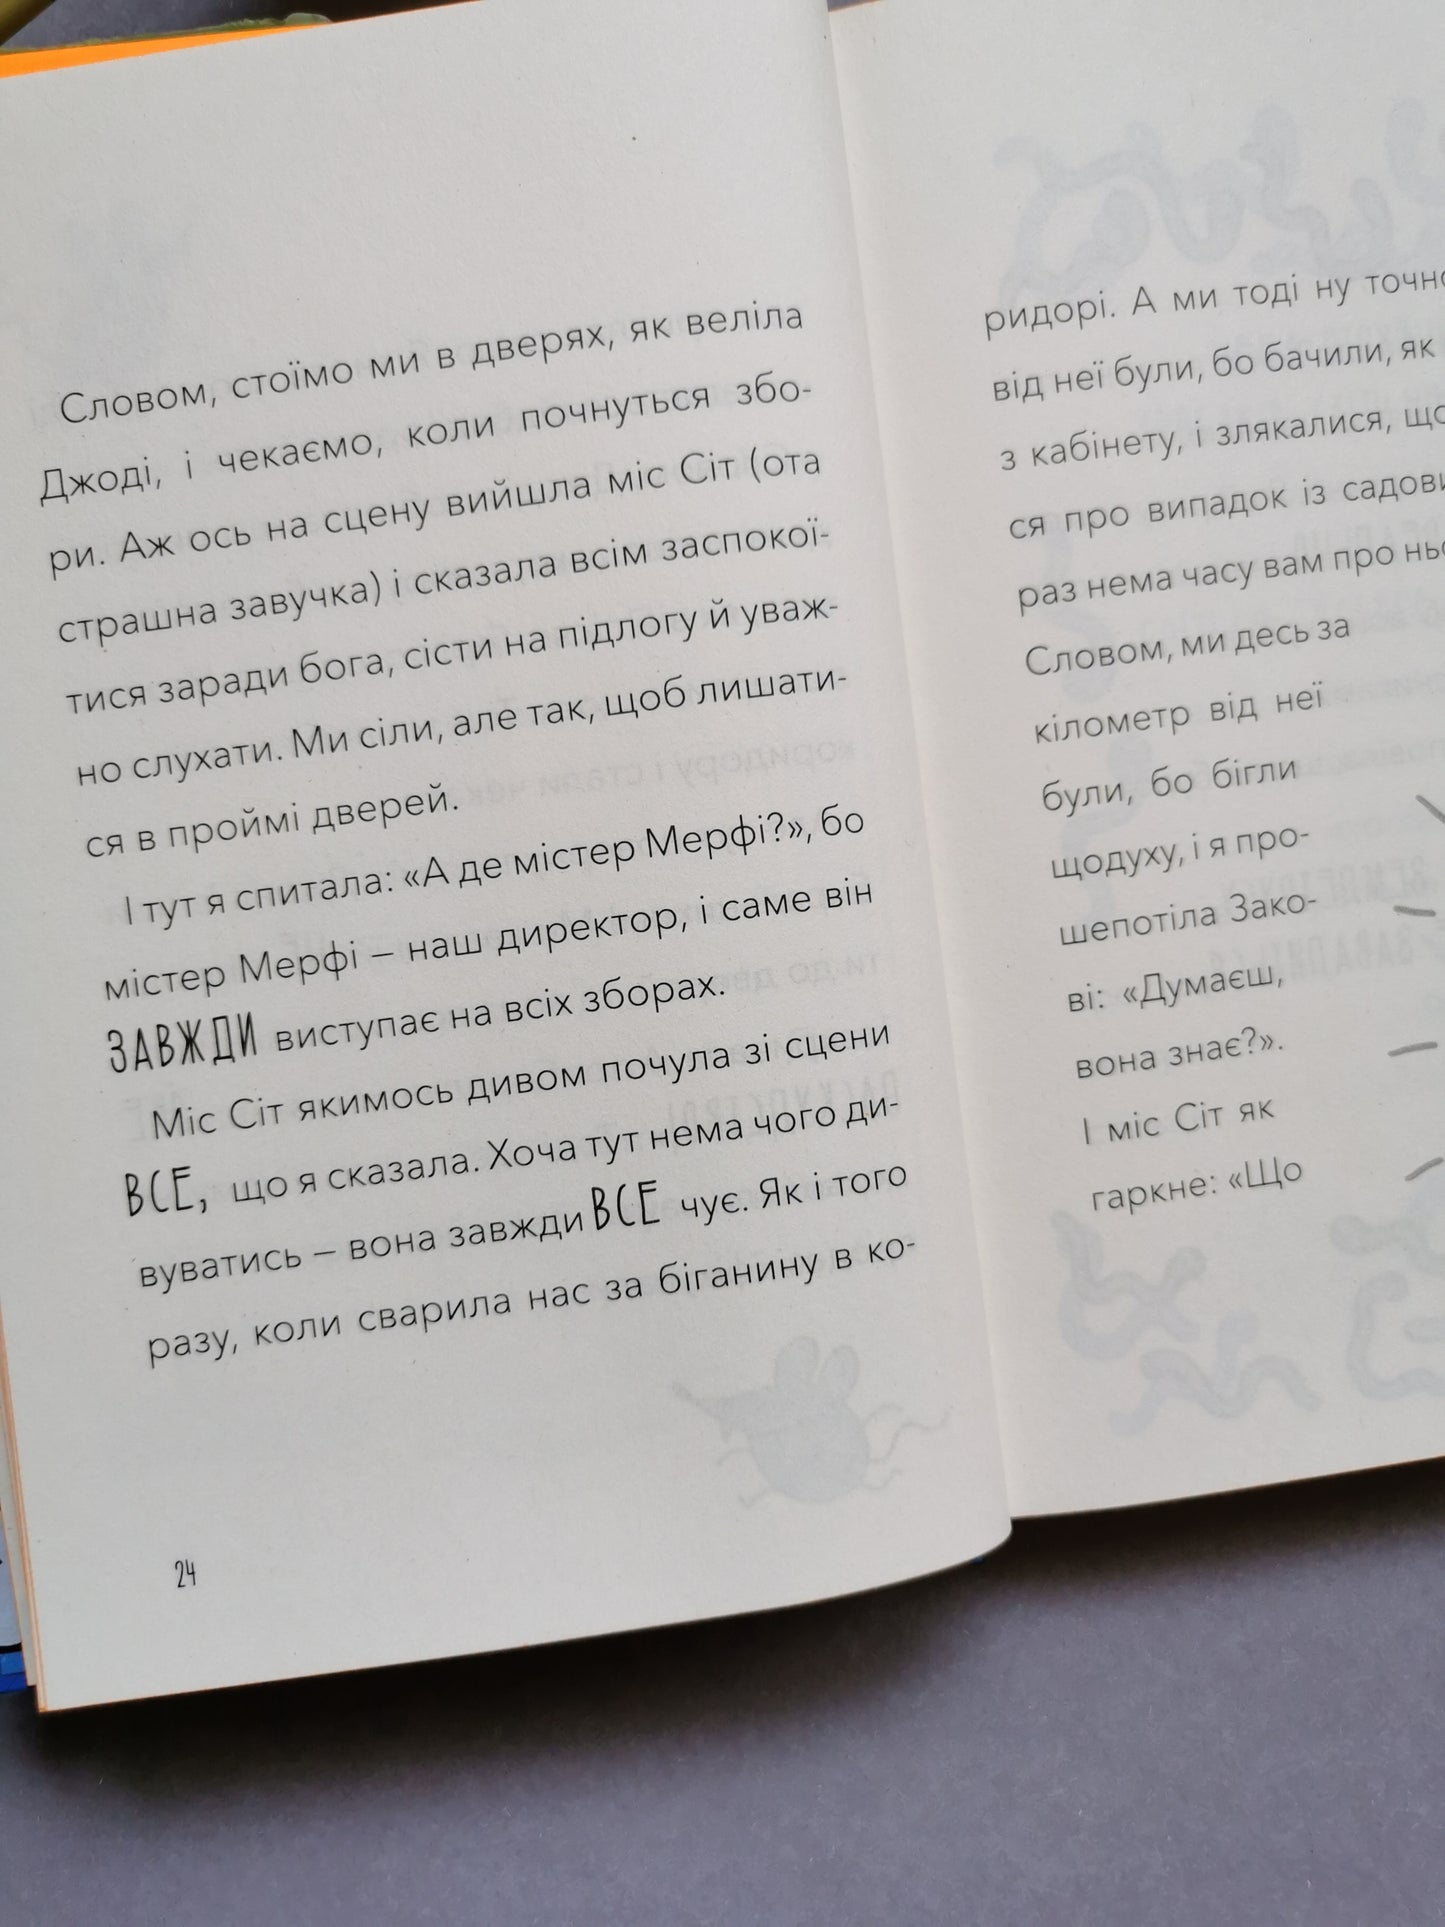 Словом, стоїмо ми в дверях, як веліла
Джоді, і чекаємо, коли почнуться збо-
ри. Аж ось на сцену вийшла міс Сіт (ота
страшна завучка) і сказала всім заспокої-
тися заради бога, сісти на підлогу й уваж-
но слухати. Ми сіли, але так, щоб лишати-
ся в проймі дверей.
І тут я спитала: «А де містер Мерфі?», бо
містер Мерфі – наш директор, і саме він
ЗАВЖДИ виступає на всіх зборах.
Міс Сіт якимось дивом почула зі сцени
ВСЕ, що я сказала. Хоча тут нема чого ди-
вуватись – вона завжди ВСЕ чує. Як і того
разу, коли сварила нас за біганину в ко-
24
ридорі. А ми тоді ну
від неї були, бо бачили, як
з кабінету, і злякалися,
ся про випадок із
раз нема часу вам про
Словом, ми десь за
кілометр від неї
були, бо бігли
щодуху, і я про-
шепотіла Зако-
ві: «Думаєш,
вона знає?».
І міс Сіт як
гаркне: «Що